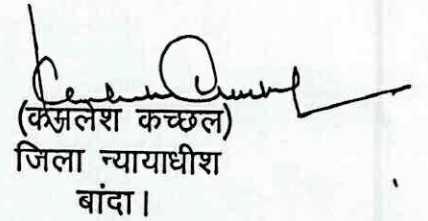 (कमलेश कच्छल)
जिला न्यायाधीश
बांदा।